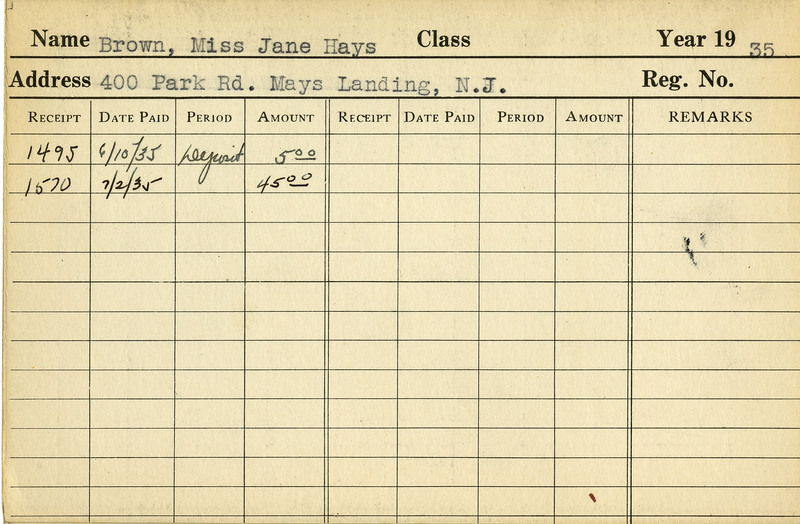 Name Brown, Miss Jane Hays Class Year 19 35
Address 400 Park Rd. Mays Landing, N.J. Reg. No.
RECEIPT DATE PAID PERIOD AMOUNT RECEIPT DATE PAID PERIOD AMOUNT REMARKS
1495 6/10/35 Deposit 5.00
1570 7/2/35 45.00